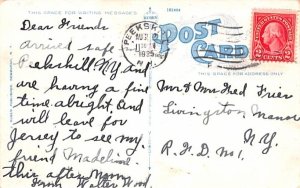 THIS SPACE FOR WRITING MESSAGES
POST CARD
PEEKSKILL
N.Y.
1935
2 CENTS 2
THIS SPACE FOR ADDRESS ONLY
Dear Friends
arrived safe
Peekskill N.Y. And
are having a fine
time alright. And
will leave for
Jersey to see my
friend Madeline
this after noon
from Walter Wood.
Mr & Mrs Fred Frier
Livingston Manor
N.Y.
R.F.D. No 1.